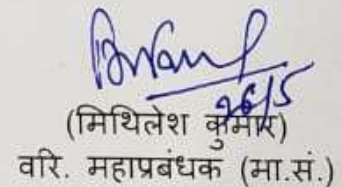 26/5
(मिथिलेश कुमार)
वरि. महाप्रबंधक (मा.सं.)